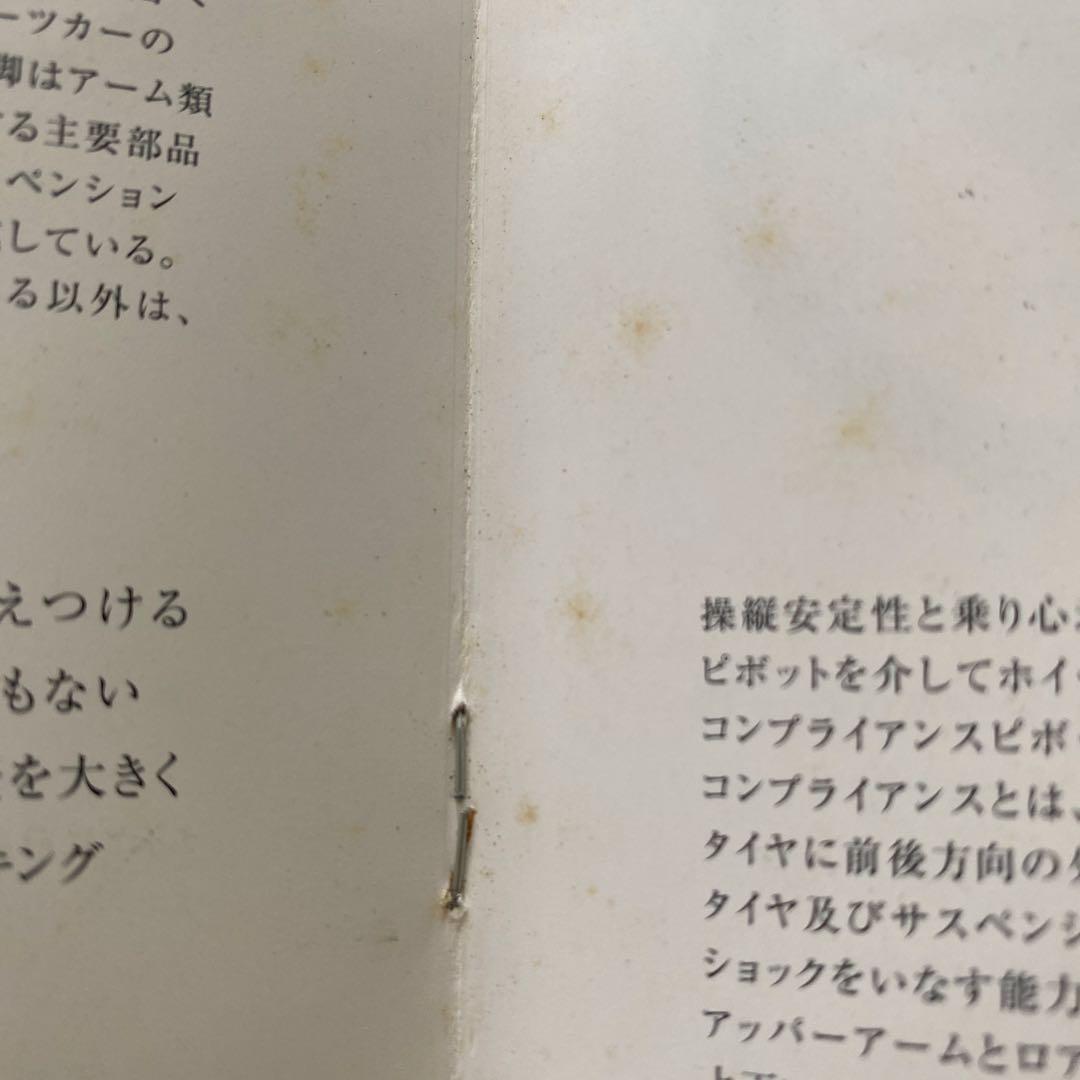 ーツカーの
脚はアーム類
する主要部品
ペンション
している。
る以外は、
えつける
もない
を大きく
キング
操縦安定性と乗り心
ピボットを介してホイ
コンプライアンスピボ
コンプライアンスとは、
タイヤに前後方向の
タイヤ及びサスペンシ
ショックをいなす能力
アッパーアームとロア